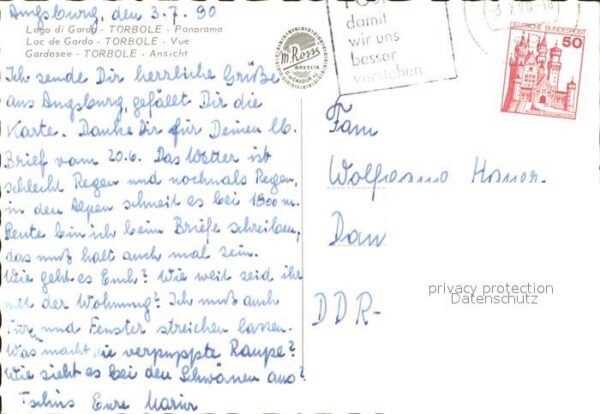 Augsburg, den 3.7.80
Lago di Garda - TORBOLE - Panorama
Lac de Garda - TORBOLE - Vue
Gardasee - TORBOLE - Ansicht
M. Rossi
BRESCIA
Ich sende Dir herrliche Grüße
aus Augsburg, gefällt Dir die
Karte. Danke Dir für Deinen lb.
Brief vom 20.6. Das Wetter ist
schlecht Regen und nochmals Regen,
in den Alpen schneit es bei 1800 m.
Heute bin ich beim Briefe schreiben,
das muß halt auch mal sein.
Wie geht es Euch? Wie weit seid ihr
mit der Wohnung? Ich muß auch
Türen und Fenster streichen lassen.
Was macht die verpuppte Raupe?
Wie sieht es bei den Schwänen aus?
Tschüs Eure
damit
wir uns
besser
verstehen
DEUTSCHE BUNDESPOST
50
Fam
Dan
privacy protection
Datenschutz
DDR-